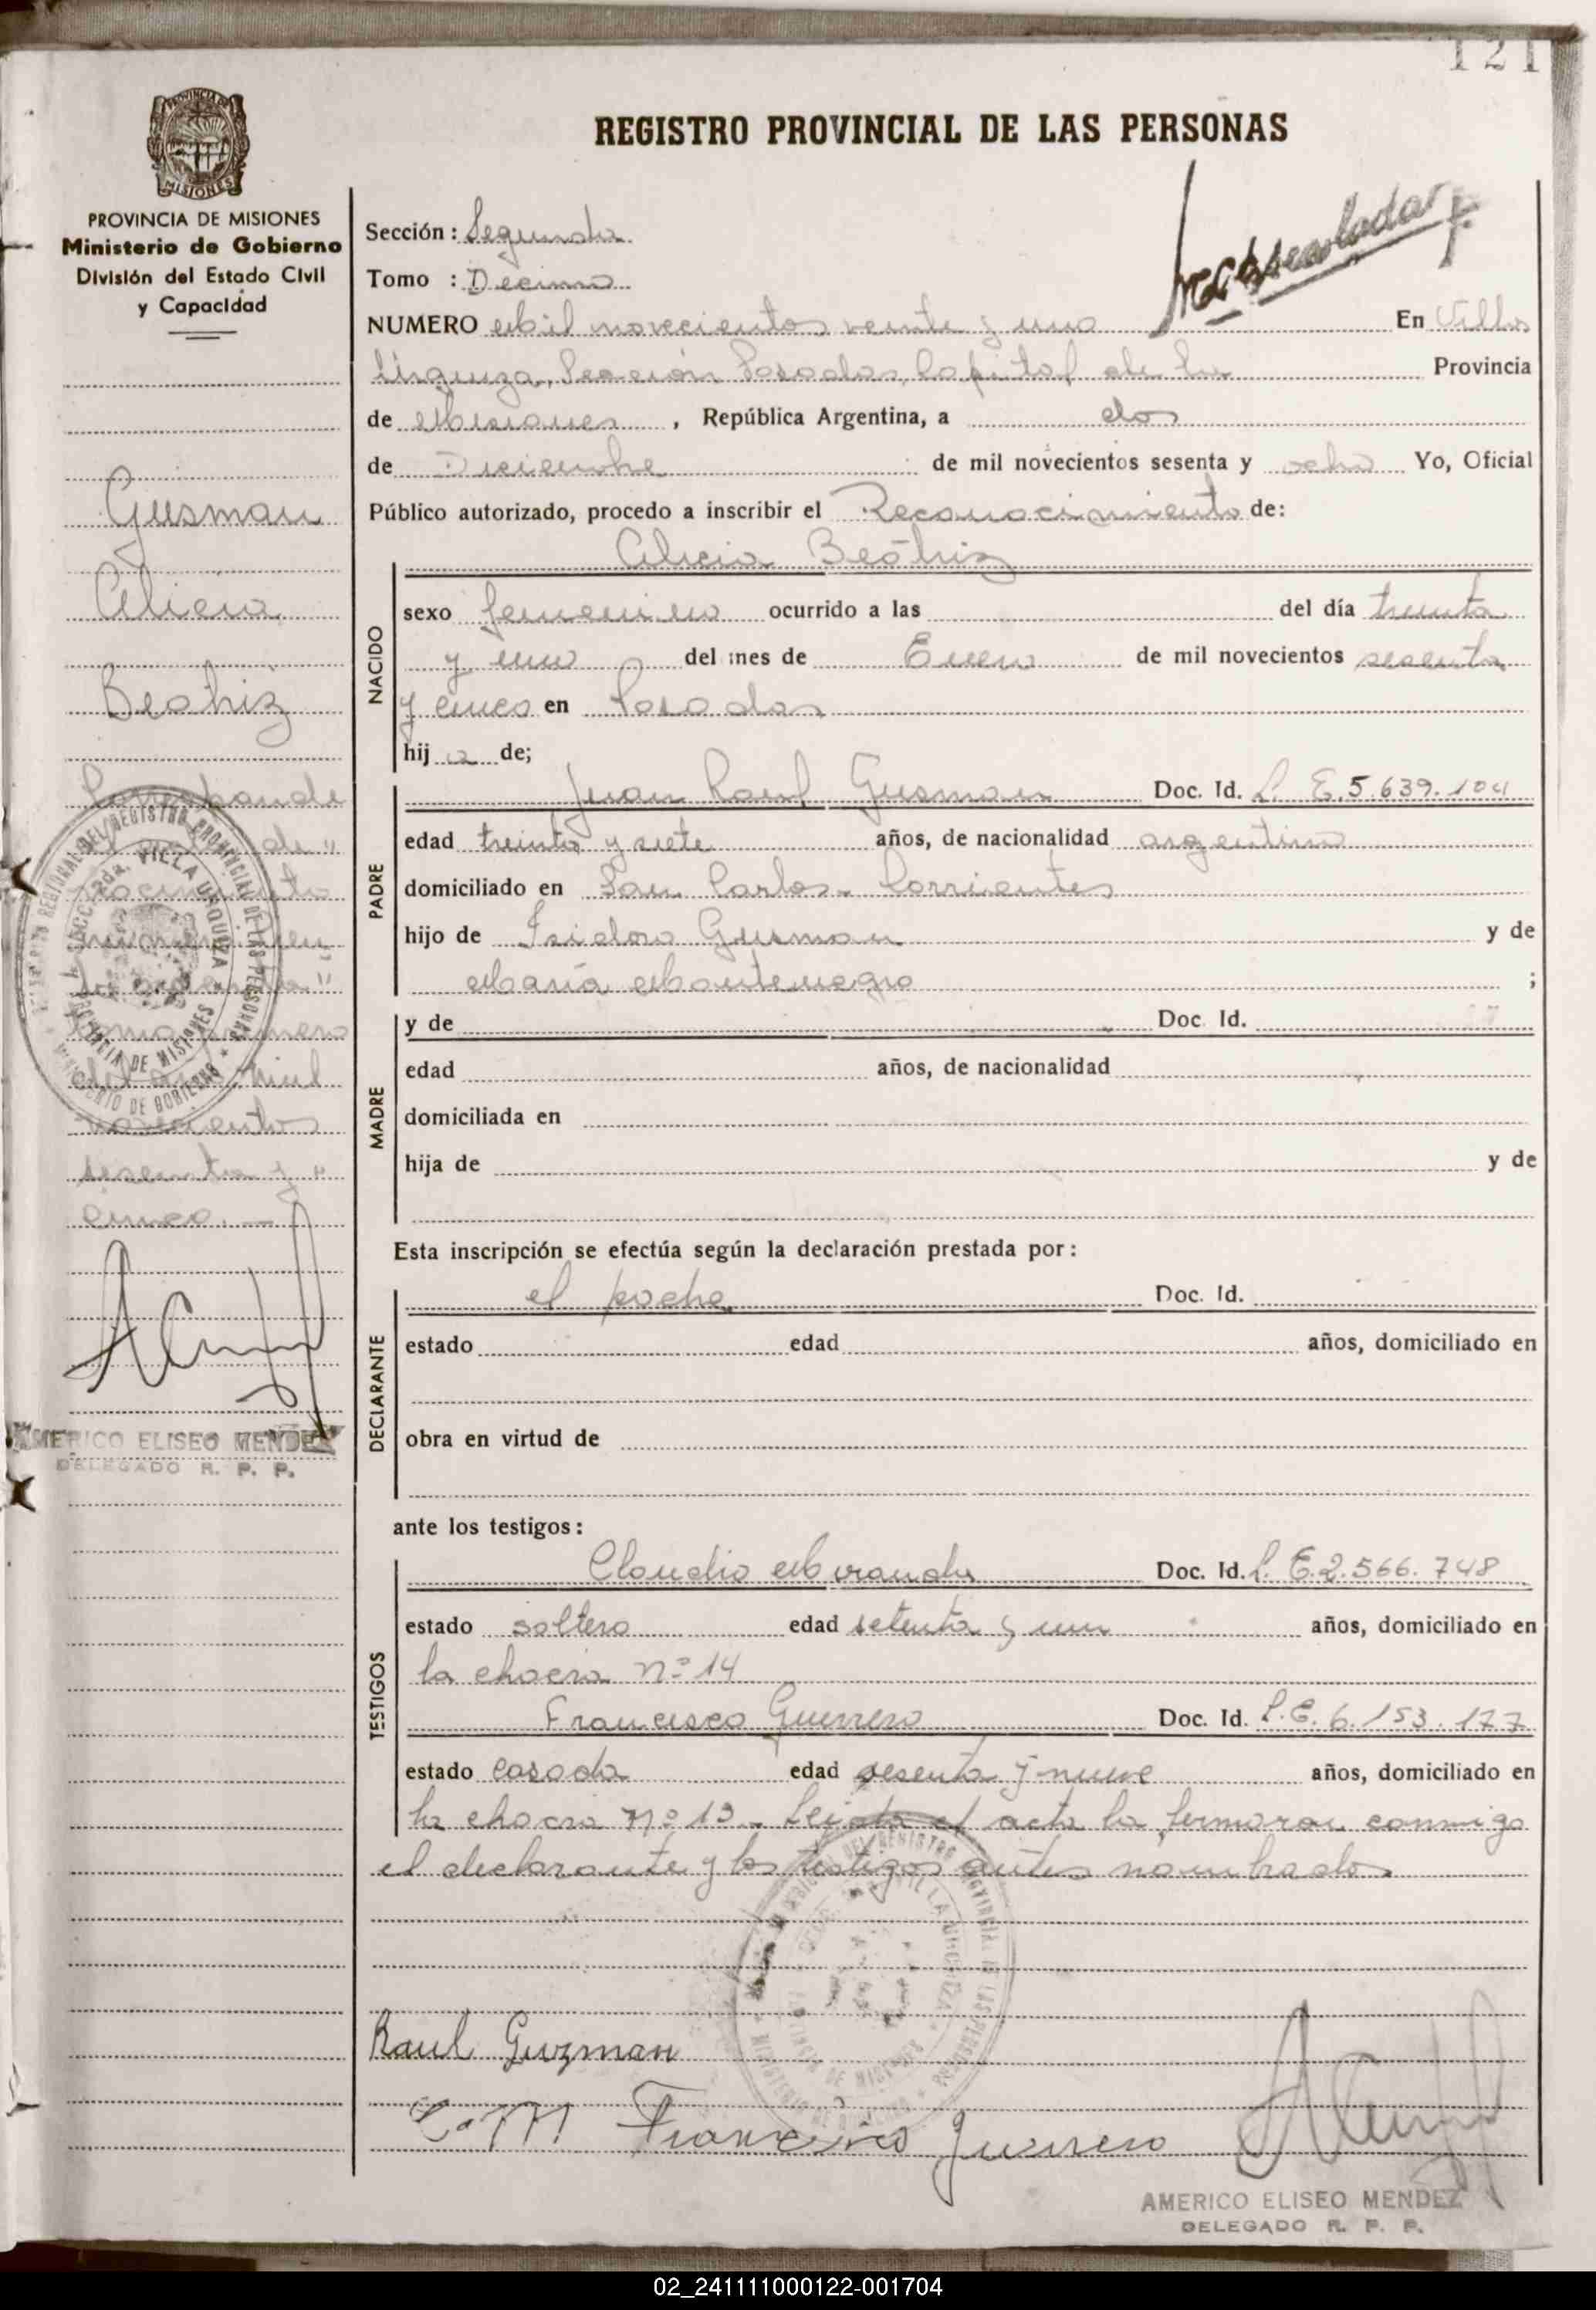 121
REGISTRO PROVINCIAL DE LAS PERSONAS
PROVINCIA DE MISIONES
Ministerio de Gobierno
División del Estado Civil
y Capacidad
Gusman
Alicia
Beatriz
Corresponde
al acta de "
nacimiento
número
tomo primero
del año mil
novecientos
sesenta y "
cinco.
AMERICO ELISEO MENDEZ
DELEGADO R. P. P.
Sección: Segunda
Tomo : Décimo
NUMERO Mil novecientos veinte y uno En Villa
Urquiza, Sección Posadas, Capital de la Provincia
de Misiones, República Argentina, a dos
de Diciembre de mil novecientos sesenta y ocho Yo, Oficial
Público autorizado, procedo a inscribir el Reconocimiento de:
Alicia Beátriz
NACIDO
sexo femenino ocurrido a las del día treinta
y uno del mes de Enero de mil novecientos sesenta
y cinco en Posadas
hij a de;
PADRE
Juan Raul Gusman Doc. Id. L. E. 5.639.104
edad treinta y siete años, de nacionalidad argentino
domiciliado en San Carlos - Corrientes
hijo de Isidoro Gusman y de
María Montenegro ;
MADRE
y de Doc. Id.
edad años, de nacionalidad
domiciliada en
hija de y de
Esta inscripción se efectúa según la declaración prestada por:
DECLARANTE
el padre Doc. Id.
estado edad años, domiciliado en
obra en virtud de
ante los testigos:
TESTIGOS
Claudio Miranda Doc. Id. L. E. 2.566.748
estado soltero edad setenta y un años, domiciliado en
la chacra nº 14
Francisco Guerrero Doc. Id. L.E. 6.153.177
estado casado edad sesenta y nueve años, domiciliado en
la chacra nº 13 - Leida el acta la firmaron conmigo
el declarante y los testigos antes nombrados
Raul Guzman
C. M Francisco Guerrero
AMERICO ELISEO MENDEZ
DELEGADO R. P. P.
02_241111000122-001704